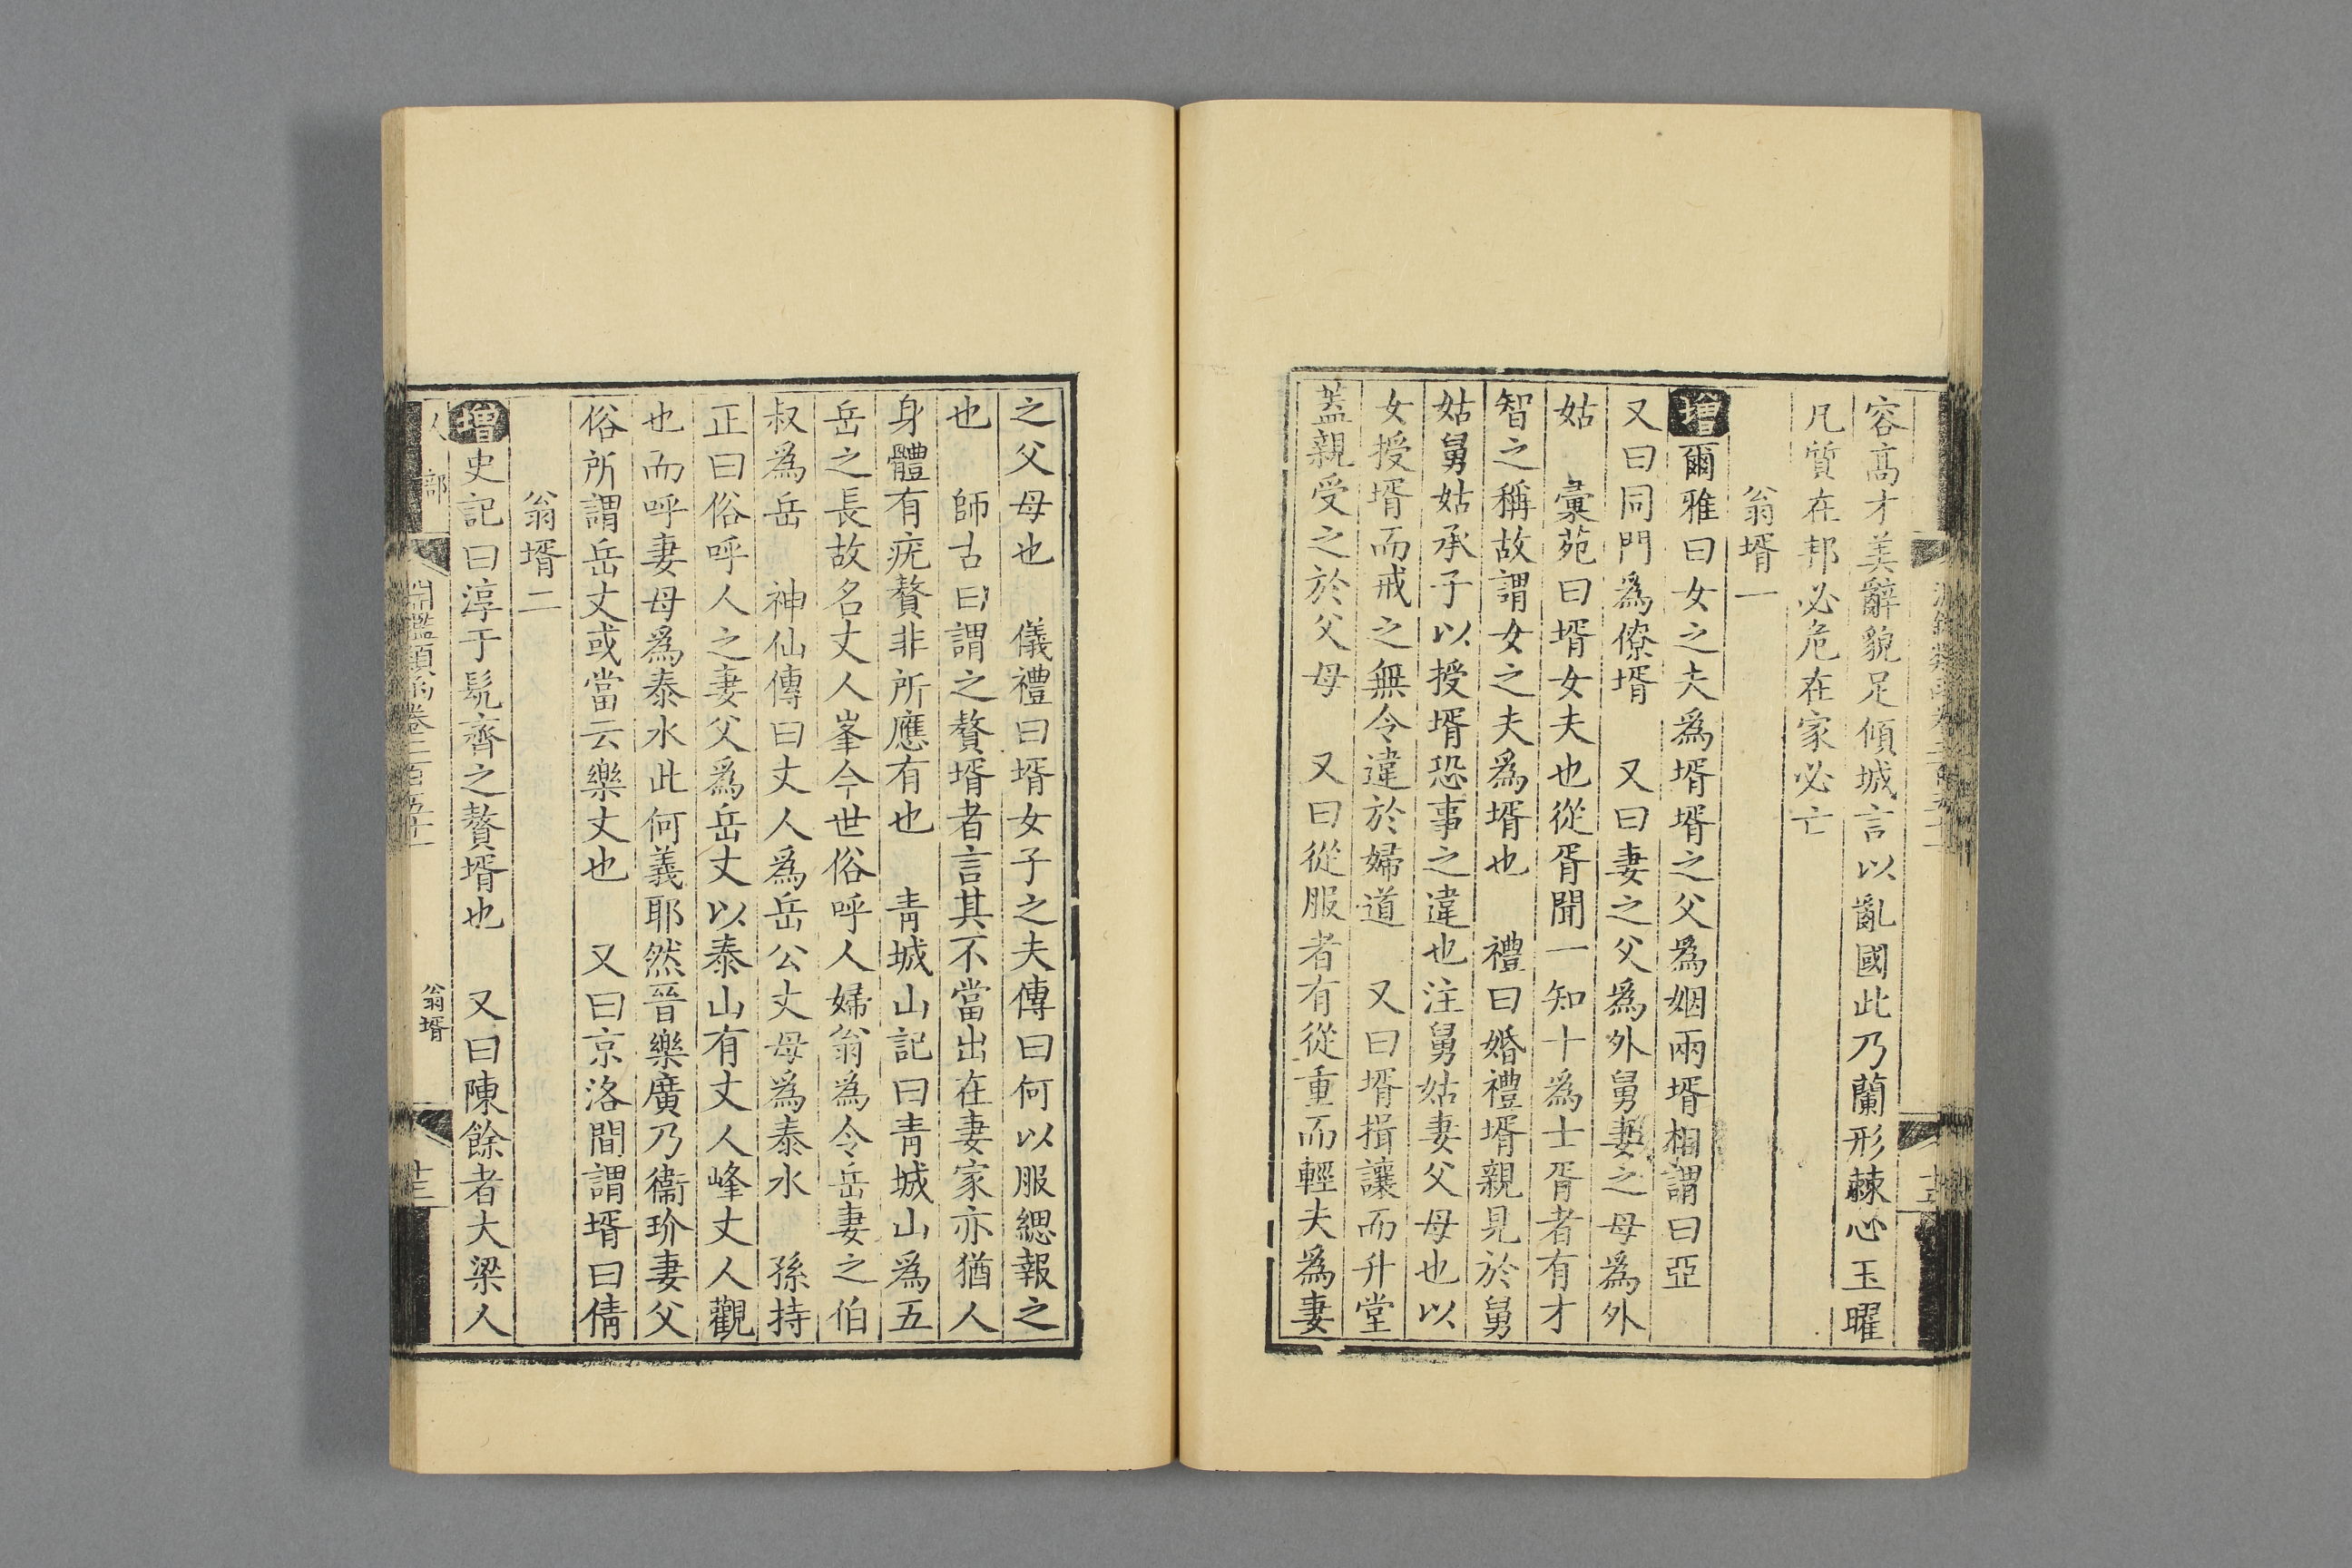 容高才美辭貌足傾城言以亂國此乃蘭形棘心玉曜
凡質在邦必危在家必亡
翁壻一
增爾雅曰女之夫爲壻壻之父爲姻兩壻相謂曰亞
又曰同門爲僚壻 又曰妻之父爲外舅妻之母爲外
姑 彙苑曰壻女夫也從胥聞一知十爲士胥者有才
智之稱故謂女之夫爲壻也 禮曰婚禮壻親見於舅
姑舅姑承子以授壻恐事之違也注舅姑妻父母也以
女授壻而戒之無令違於婦道 又曰壻揖讓而升堂
葢親受之於父母 又曰從服者有從重而輕夫爲妻
之父母也 儀禮曰壻女子之夫傳曰何以服緦報之
也 師古曰謂之贅壻者言其不當出在妻家亦猶人
身體有疣贅非所應有也 青城山記曰青城山爲五
岳之長故名丈人峯今世俗呼人婦翁爲令岳妻之伯
叔爲岳 神仙傳曰丈人爲岳公丈母爲泰水 孫持
正曰俗呼人之妻父爲岳丈以泰山有丈人峰丈人觀
也而呼妻母爲泰水此何義耶然晉樂廣乃衞玠妻父
俗所謂岳丈或當云樂丈也 又曰京洛間謂壻曰倩
翁壻二
增史記曰淳于髡齊之贅壻也 又曰陳餘者大梁人
人部 淵鑑類函卷二百五十 翁壻